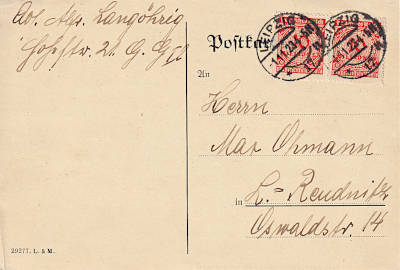 Abs. Alf. Langöhrig
Hohestr. 21. G. G. II
Postkarte
LEIPZIG
LEIPZIG
An
Herrn
Max Ohmann
in L.-Reudnitz
Oswaldstr. 14
29277. L. & M.